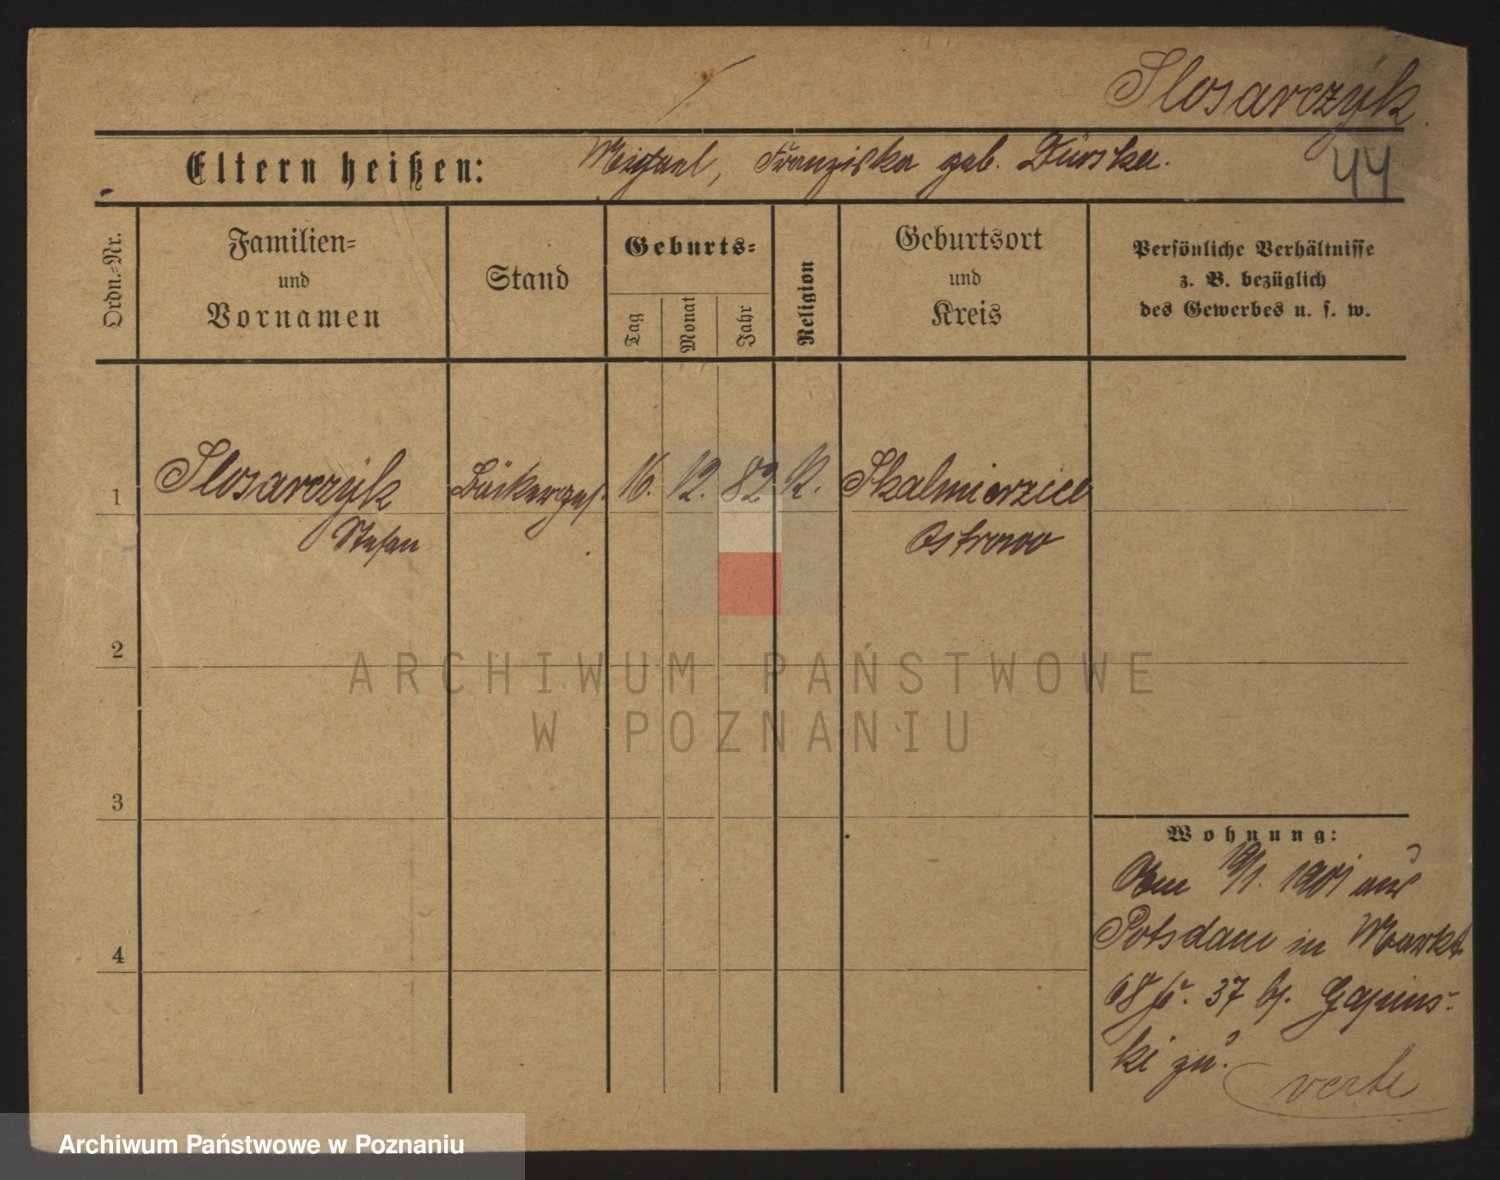 Slosarczyk.
Eltern heißen: Michael, Franziska geb. Dürska.
44
Ordn.-Nr.
Familien-
und
Vornamen
Stand
Geburts-
Tag
Monat
Jahr
Religion
Geburtsort
und
Kreis
Persönliche Verhältnisse
z. B. bezüglich
des Gewerbes u. s. w.
1 Slosarczyk Bäckerges. 16. 12. 82 K. Skalmierzice
Stefan Ostrowo
2
ARCHIWUM PAŃSTWOWE
W POZNANIU
3
Wohnung:
Am 19/1. 1901 aus
Potsdam in Markt
37 b.
ki zu.
verte
4
Archiwum Państwowe w Poznaniu